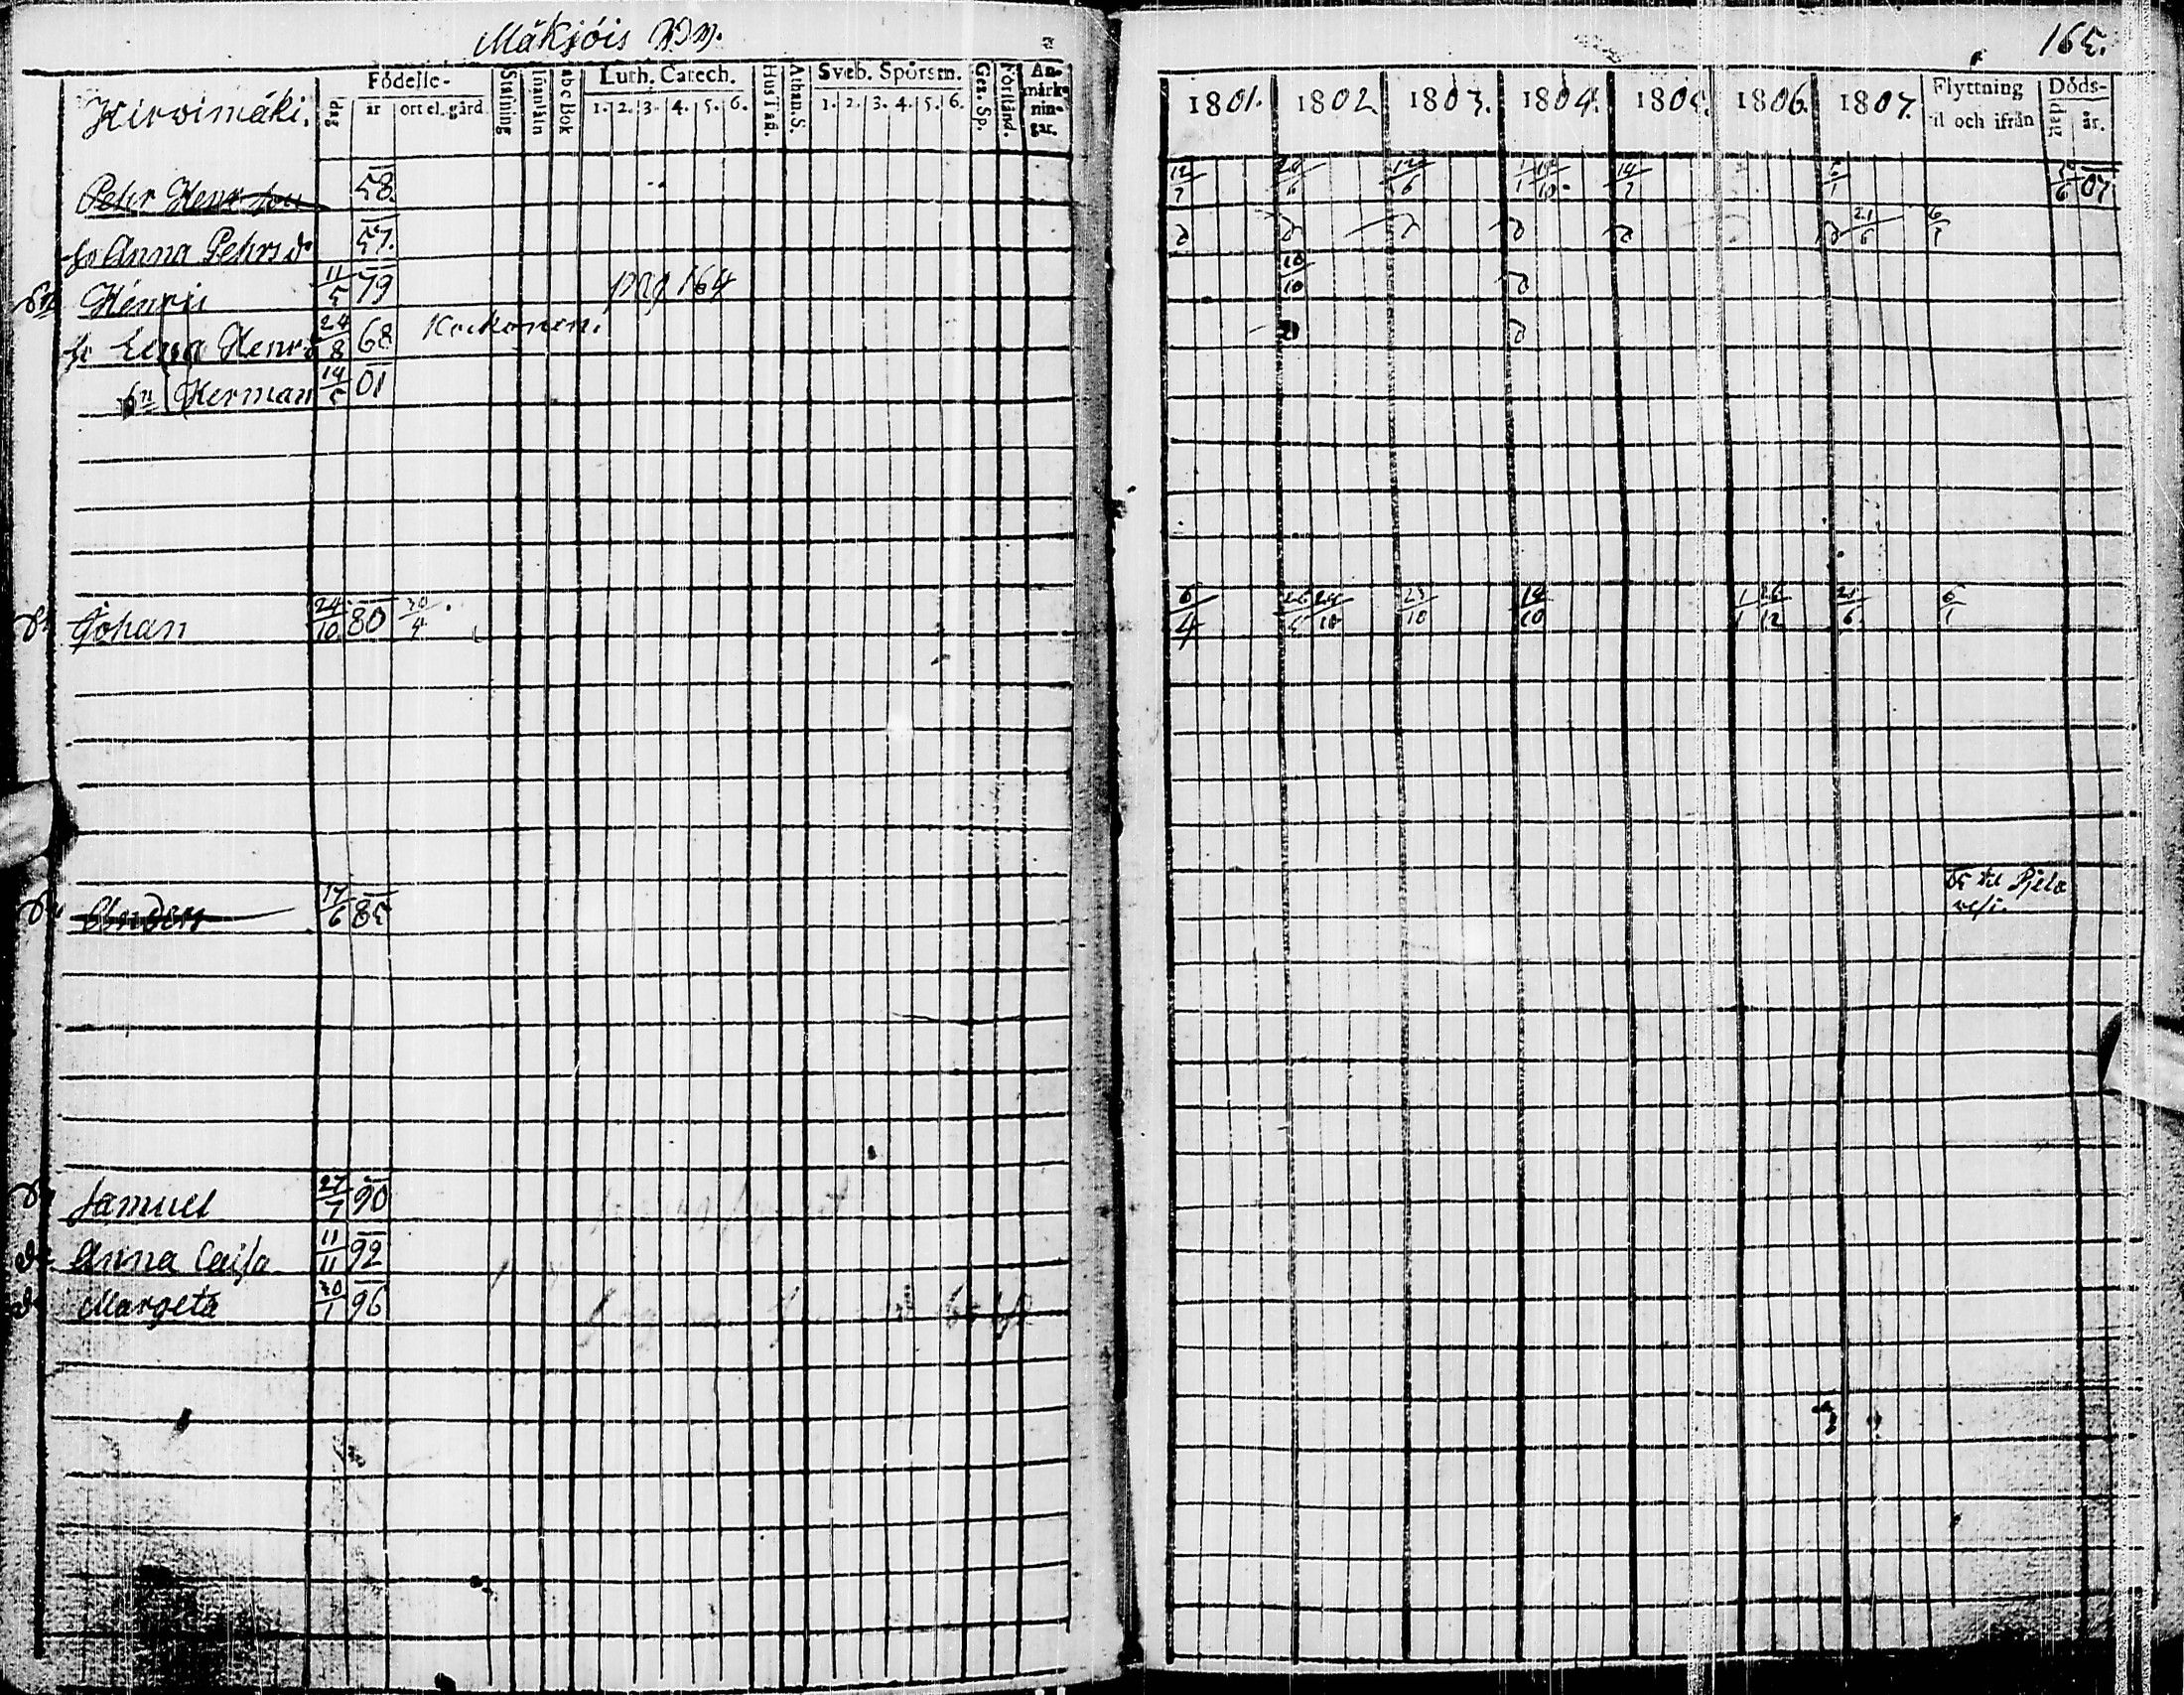 Mäkjöis
165.
Kirvimäki.
Födelse-
dag
år
ort el. gård
Stafning
Innanläsn
abc Bok
Luth. Catech.
1. 2. 3. 4. 5. 6.
Hustafl.
Athan. S.
Sveb. Spörsm.
1. 2. 3. 4. 5. 6.
Gez. Sp.
Förstånd.
An-
märk-
nin-
gar.
1801. 1802 1803. 1804. 1805 1806. 1807.
Flyttning
til och ifrån
Döds-
dag
år.
Pehr Henrsson 58. 12/7 1/1 5/1 07
hu Anna Pehrsdr 57. 21/6 6/1
Sn Henric 11/5 79 pag 164 10/10
hu Lena Henrsd 24/8 68 Kockonen.
Sn Herman 14/5 01
Sn Johan 24/10 80 30/4 6/4 23/10 19/10 1/1 26/12 21/6 6/1
Sn Anders 17/6 85 05 til Pjela
vesi.
Sn Samuel 27/7 90
dr Anna Caisa 11/11 92
dr Margeta 30/1 96